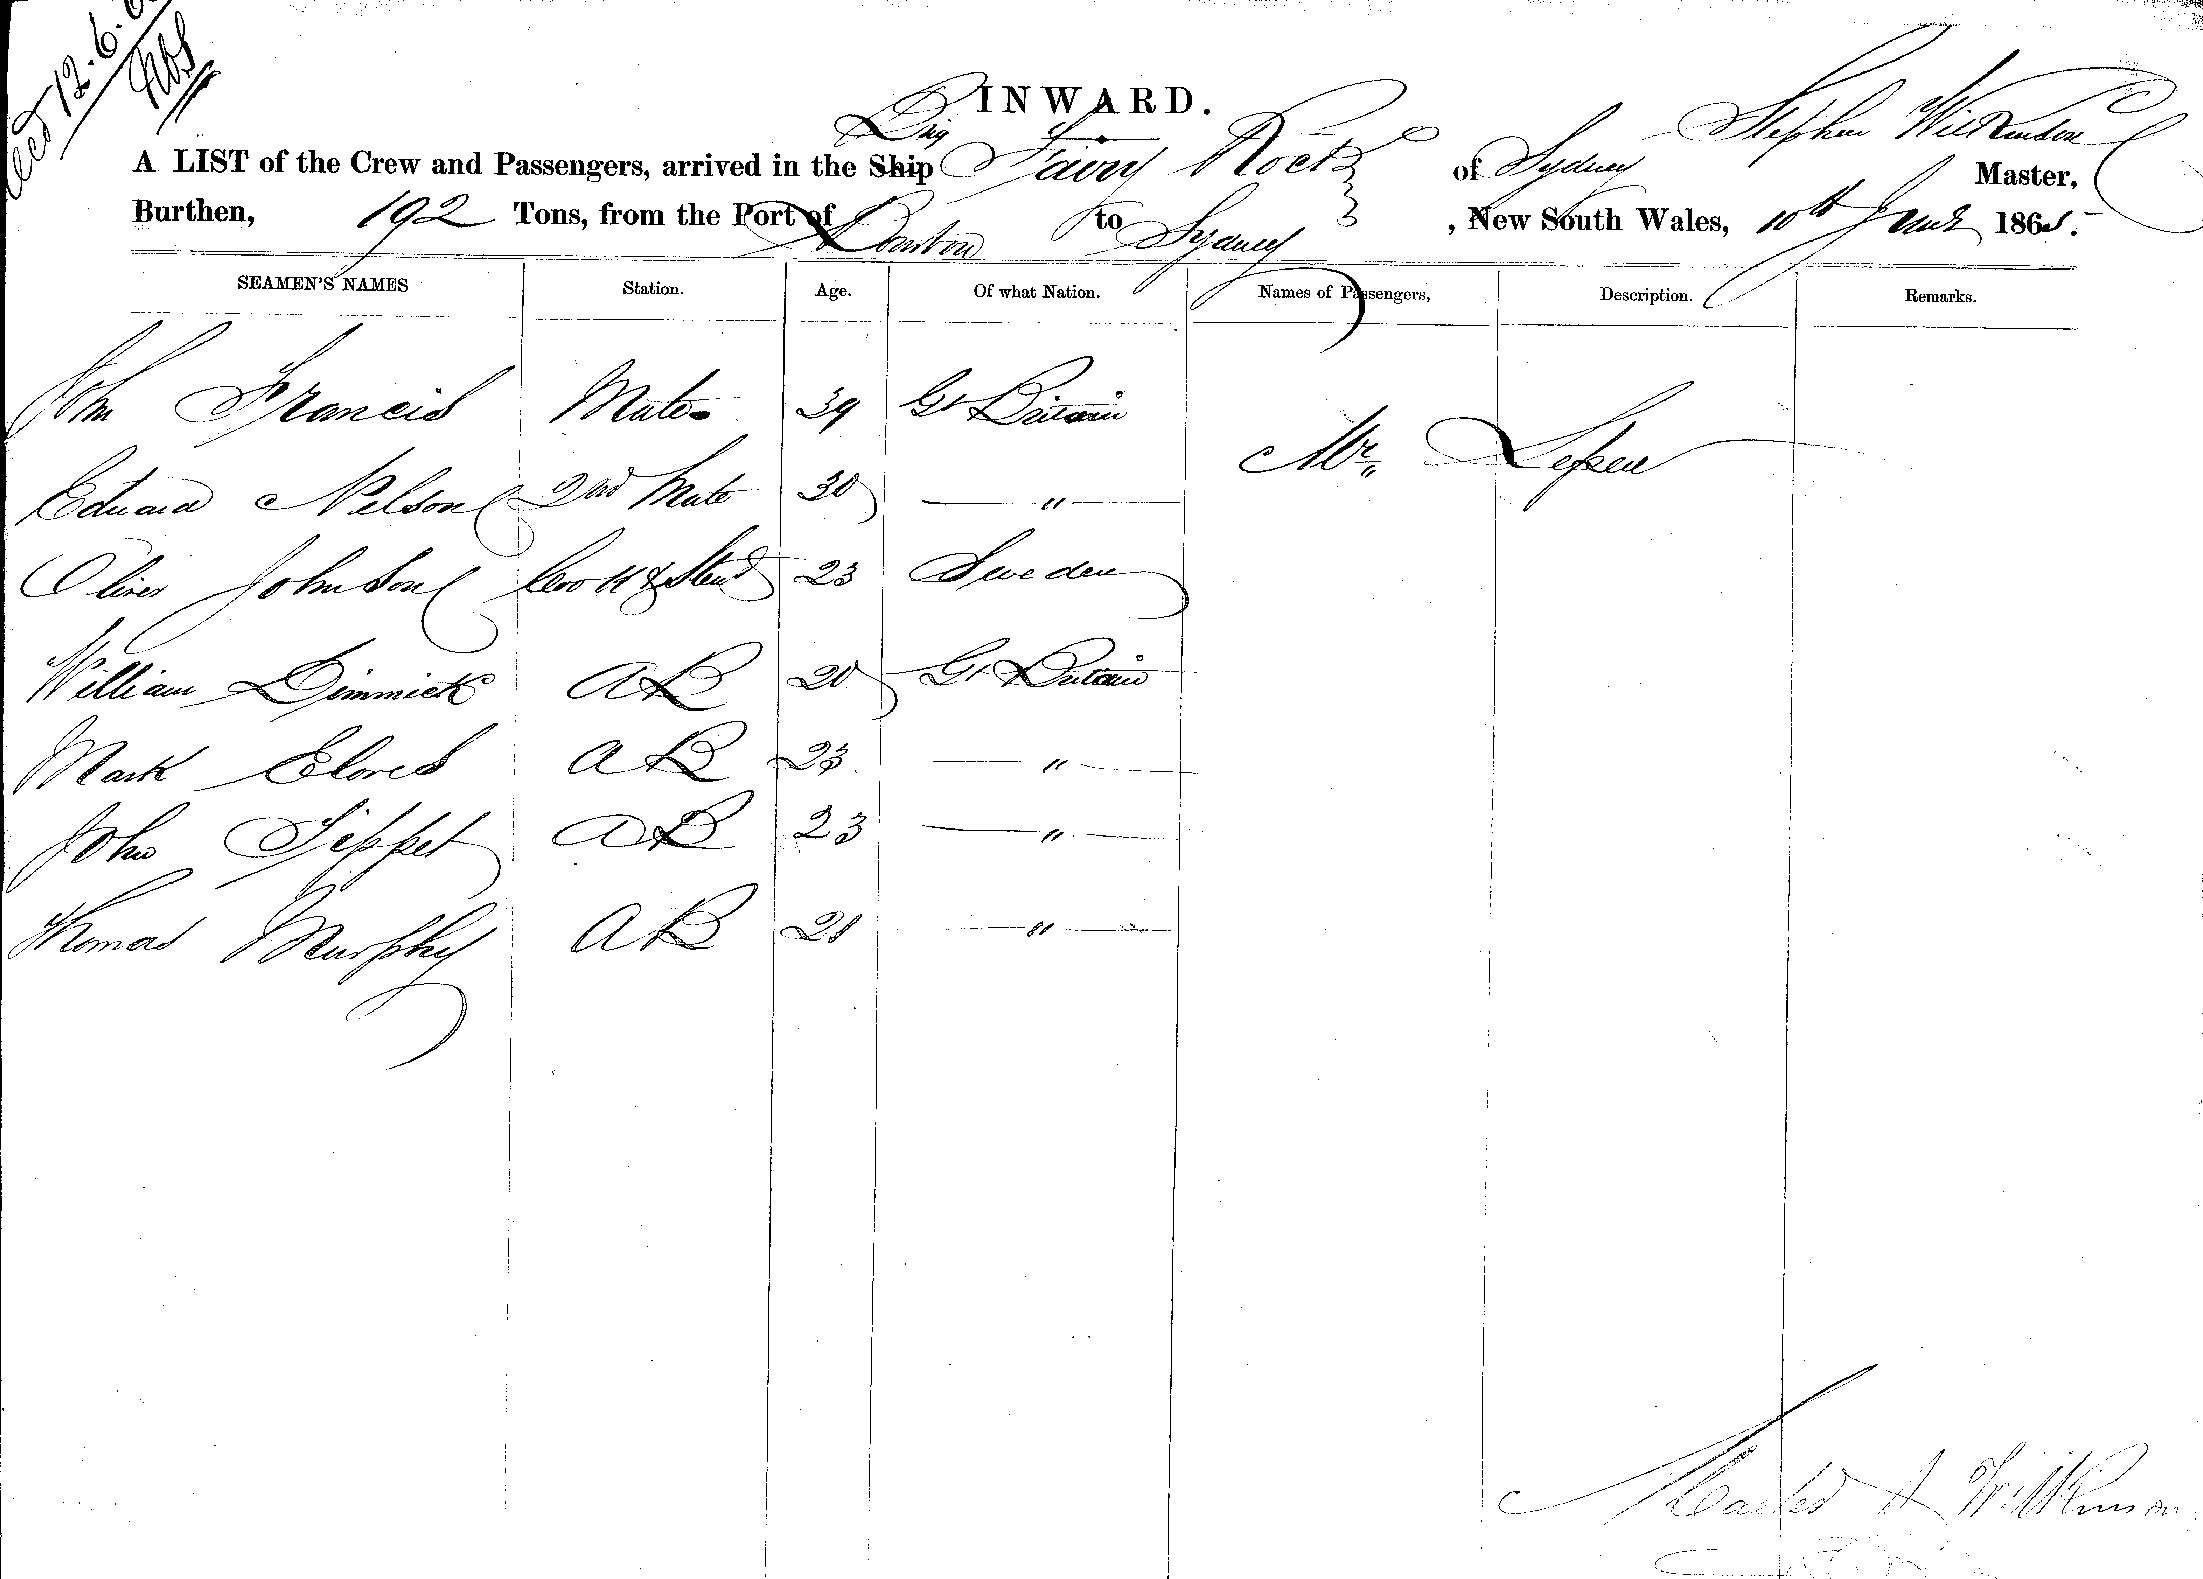 12.6.
INWARD.
A LIST of the Crew and Passengers, arrived in the Ship Brig Fairy Rock of Sydney Stephen Wilkinson Master,
Burthen, 192 Tons, from the Port of to Sydney, New South Wales, 10th June 1865.
SEAMEN'S NAMES Station. Age. Of what Nation. Names of Passengers, Description. Remarks.
John Francis Mate 39 Gt Britain Mr,,
Edward Nelson 2nd Mate 30 — " —
Oliver Johnson Cook & Stewd 23 Sweden
William Dimmick AB 20 Gt Britain
Mark Cloves AB 23 — " —
John Tippet AB 23 — " —
Thomas Murphy AB 28 — " —
Master S Wilkinson